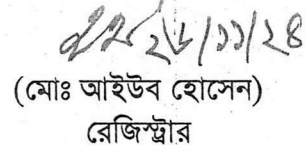 ২৮/১১/২৪
(মোঃ আইউব হোসেন)
রেজিস্ট্রার